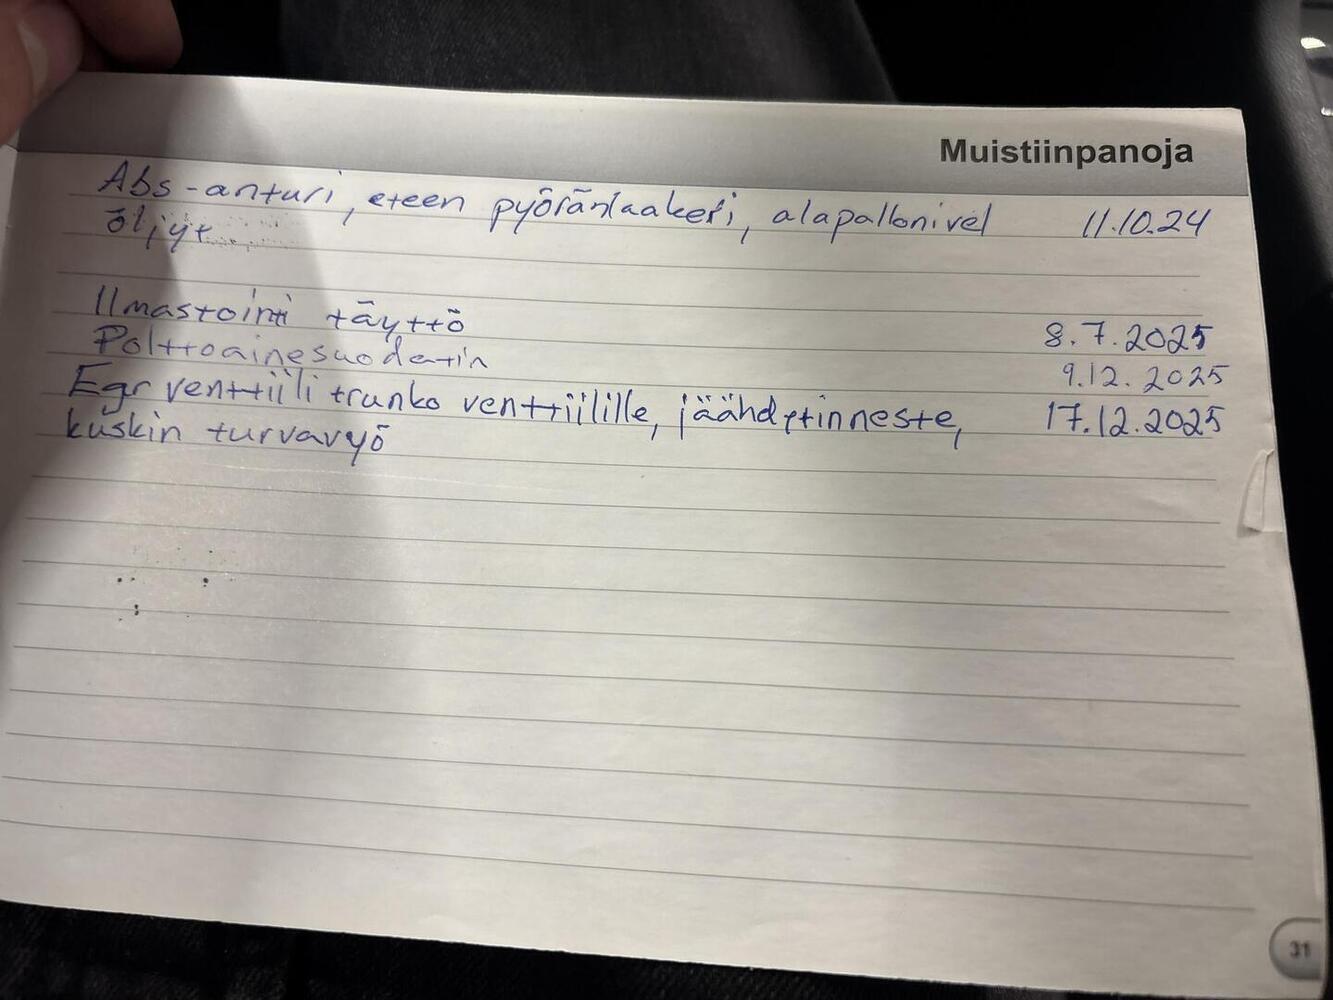 Muistiinpanoja
Abs-anturi, eteen pyöränlaakeri, alapallonivel 11.10.24
öljyt
Ilmastointi täyttö 8.7.2025
Polttoainesuodatin 9.12.2025
Egr venttiili trunko venttiilille, jäähdytinneste, 17.12.2025
kuskin turvavyö
31